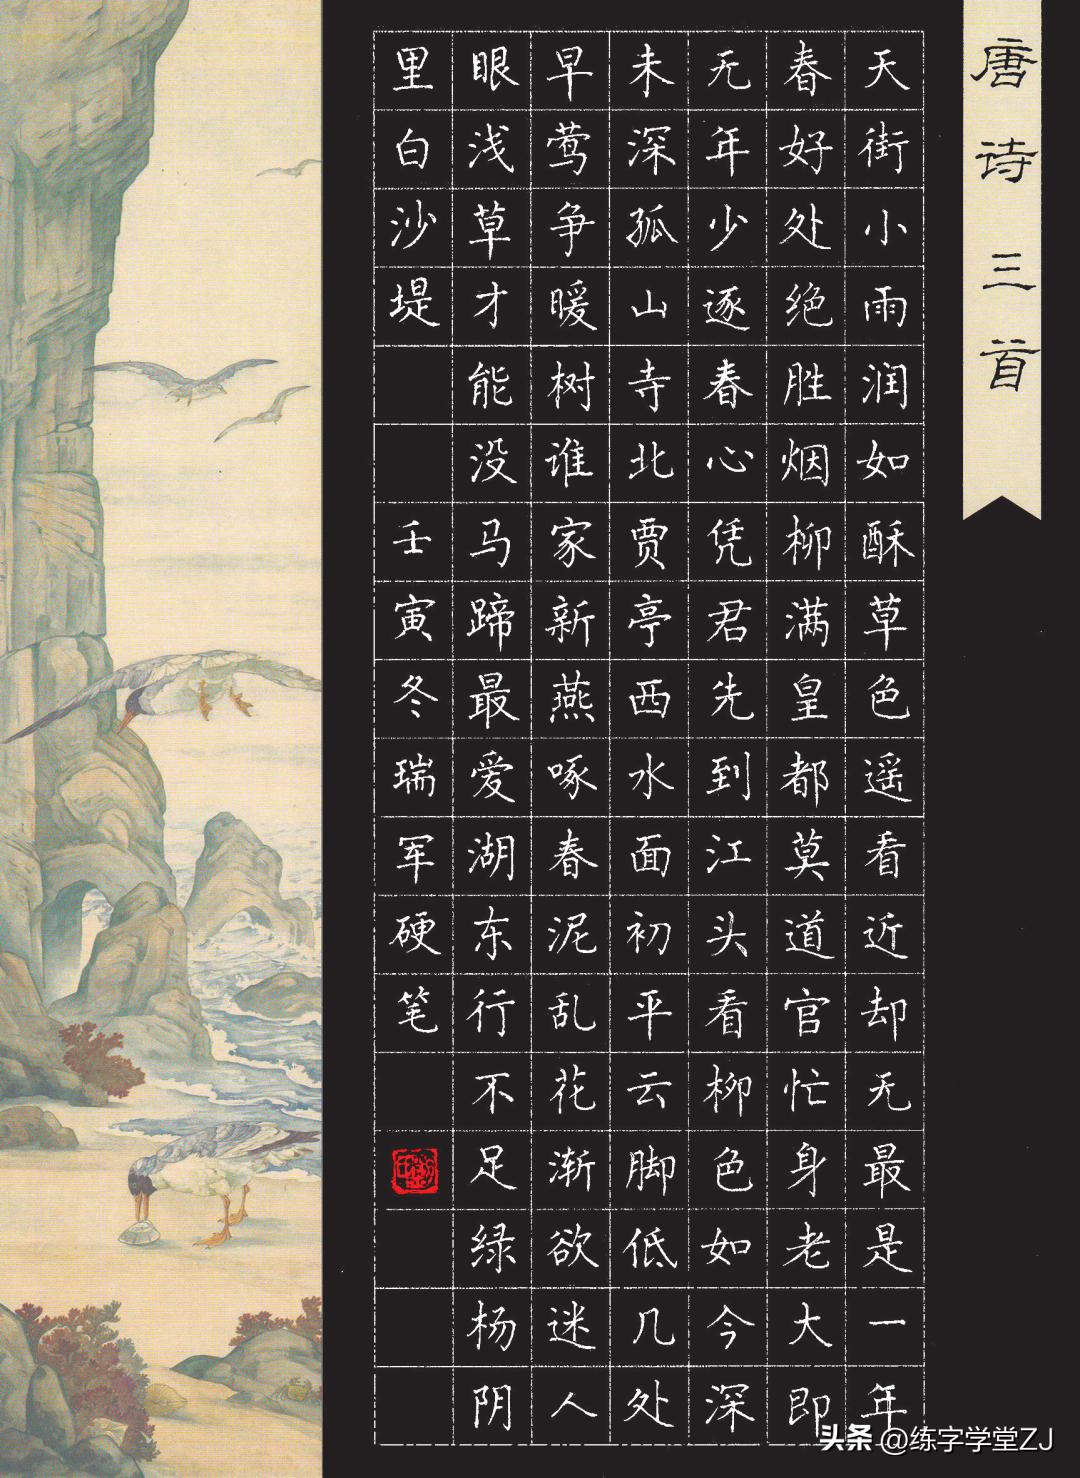 唐诗三首
天街小雨润如酥草色遥看近却无最是一年
春好处绝胜烟柳满皇都莫道官忙身老大即
无年少逐春心凭君先到江头看柳色如今深
未深孤山寺北贾亭西水面初平云脚低几处
早莺争暖树谁家新燕啄春泥乱花渐欲迷人
眼浅草才能没马蹄最爱湖东行不足绿杨阴
里白沙堤 壬寅冬瑞军硬笔
头条 @练字学堂ZJ